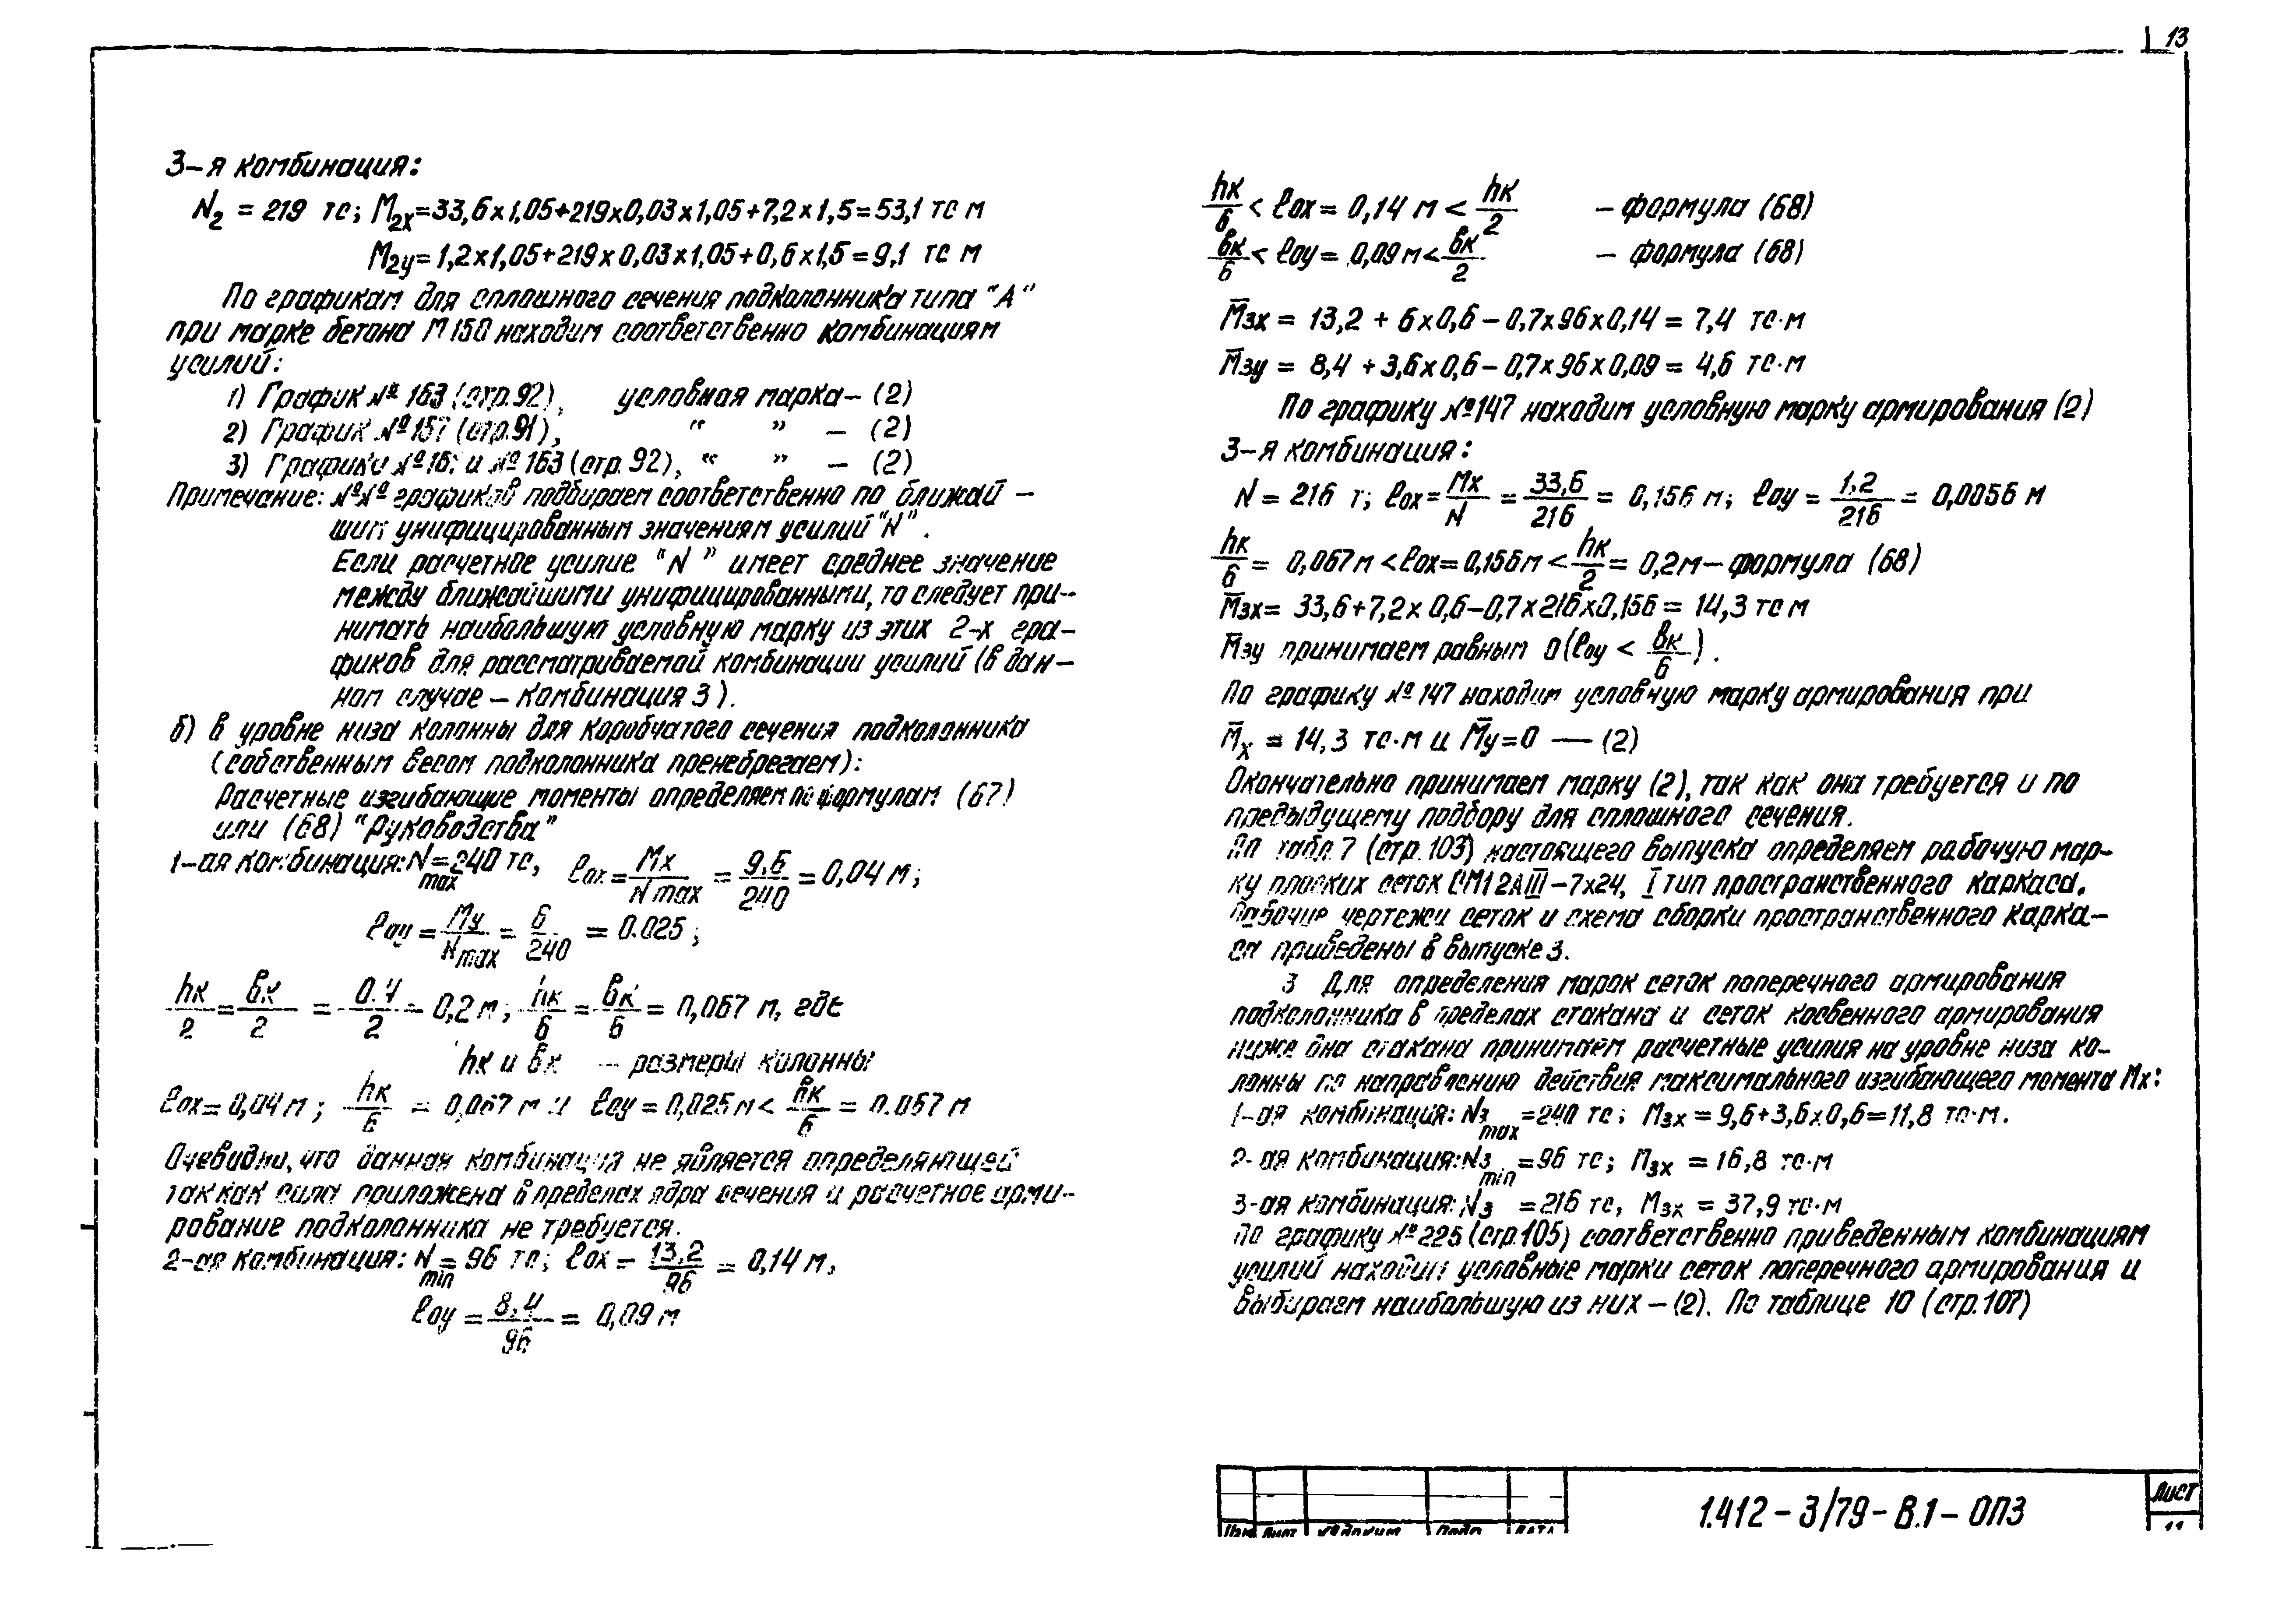 13
3-я комбинация:
N2 = 219 тс; M2x=33,6x1,05+219x0,03x1,05+7,2x1,5=53,1 тс м
M2y=1,2x1,05+219x0,03x1,05+0,6x1,5=9,1 тс м
По графикам для сплошного сечения подколонника типа "А"
при марке бетона М150 находим соответственно комбинациям
усилий:
1) График №163 (стр.92), условная марка - (2)
2) График №157 (стр.91), " " - (2)
3) Графики и №163 (стр.92), " " - (2)
Примечание: №№ графиков подбираем соответственно по ближай-
шим унифицированным значениям усилий "N".
Если расчетное усилие "N" имеет среднее значение
между ближайшими унифицированными, то следует при-
нимать наибольшую условную марку из этих 2-х гра-
фиков для рассматриваемой комбинации усилий (в дан-
ном случае - комбинация 3).
б) в уровне низа колонны для коробчатого сечения подколонника
(собственным весом подколонника пренебрегаем):
Расчетные изгибающие моменты определяем по формулам (67)
или (68) "Руководства"
1-ая комбинация: Nmax=240 тс, eox = Mx/Nmax = 9,6/240 = 0,04 м;
eoy = My/Nmax = 6/240 = 0.025;
hк/2 = вк/2 = 0.4/2 = 0,2 м; hк/6 = вк/6 = 0,067 м, где
hк и вк - размеры колонны
eox = 0,04 м; hк/6 = 0,067 м и eoy = 0,025 м < вк/6 = 0.067 м
Очевидно, что данная комбинация не является определяющей
так как сила приложена в пределах ядра сечения и расчетное арми-
рование подколонника не требуется.
2-ая комбинация: Nmin = 96 тс; eox = 13,2/96 = 0,14 м,
eoy = 8,4/96 = 0,09 м
hк/6 < eox = 0,14 м < hк/2 - формула (68)
вк/6 < eoy = 0,09 м < вк/2 - формула (68)
M̄3x = 13,2 + 6x0,6 - 0,7x96x0,14 = 7,4 тс·м
M̄3y = 8,4 + 3,6x0,6 - 0,7x96x0,09 = 4,6 тс·м
По графику №147 находим условную марку армирования (2)
3-я комбинация:
N = 216 т; eox = Mx/N = 33,6/216 = 0,156 м; eoy = 1,2/216 = 0,0056 м
hк/6 = 0,067 м < eox = 0,156 м < hк/2 = 0,2 м - формула (68)
M̄3x = 33,6+7,2x0,6-0,7x216x0,156 = 14,3 тс м
M̄3y принимаем равным 0 (eoy < вк/6).
По графику №147 находим условную марку армирования при
M̄x = 14,3 тс·м и M̄y=0 — (2)
Окончательно принимаем марку (2), так как она требуется и по
предыдущему подбору для сплошного сечения.
По табл. 7 (стр.103) настоящего выпуска определяем рабочую мар-
ку плоских сеток СМ12АIII-7x24, I тип пространственного каркаса.
Рабочие чертежи сеток и схема сборки пространственного карка-
са приведены в выпуске 3.
3 Для определения марок сеток поперечного армирования
подколонника в пределах стакана и сеток косвенного армирования
ниже дна стакана принимаем расчетные усилия на уровне низа ко-
лонны по направлению действия максимального изгибающего момента Mx:
1-ая комбинация: N3max =240 тс; M3x = 9,6+3,6x0,6=11,8 тс·м.
2-ая комбинация: N3min =96 тс; M3x = 16,8 тс·м
3-ая комбинация: N3 =216 тс, M3x = 37,9 тс·м
По графику №225 (стр.105) соответственно приведенным комбинациям
усилий находим условные марки сеток поперечного армирования и
выбираем наибольшую из них - (2). По таблице 10 (стр.107)
Изм Лист № докум Подп Дата
1.412-3/79-В.1-ОПЗ
Лист
11